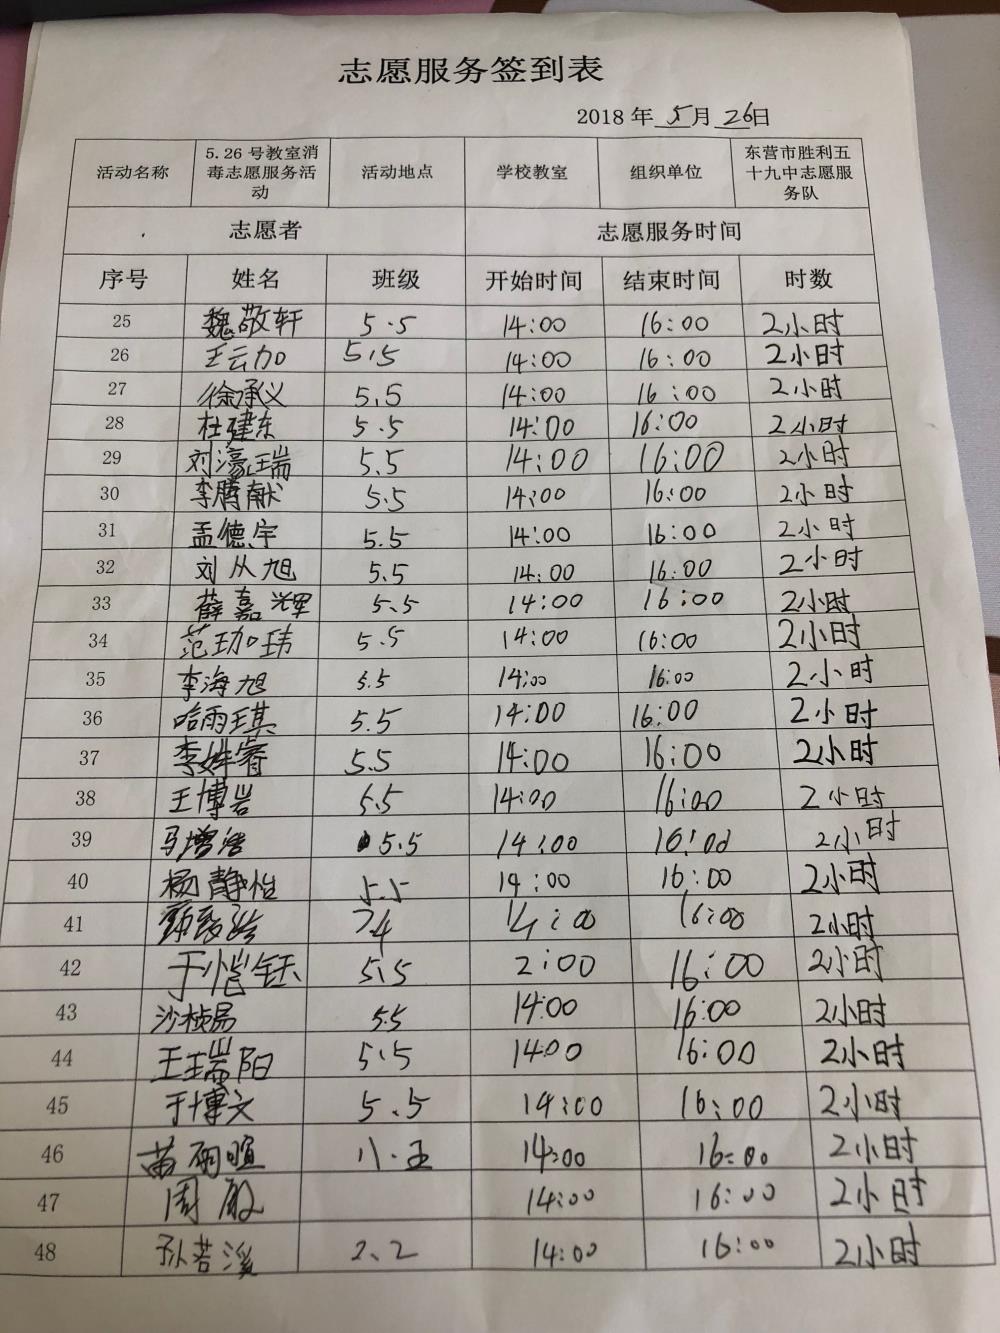 志愿服务签到表
2018年5月26日
活动名称 5.26号教室消毒志愿服务活动 活动地点 学校教室 组织单位 东营市胜利五十九中志愿服务队
志愿者 志愿服务时间
序号 姓名 班级 开始时间 结束时间 时数
25 魏敬轩 5.5 14:00 16:00 2小时
26 王云加 5.5 14:00 16:00 2小时
27 徐承义 5.5 14:00 16:00 2小时
28 杜建东 5.5 14:00 16:00 2小时
29 刘濠瑞 5.5 14:00 16:00 2小时
30 李腾献 5.5 14:00 16:00 2小时
31 孟德宇 5.5 14:00 16:00 2小时
32 刘从旭 5.5 14:00 16:00 2小时
33 薛嘉辉 5.5 14:00 16:00 2小时
34 范珈玮 5.5 14:00 16:00 2小时
35 李海旭 5.5 14:00 16:00 2小时
36 哈雨琪 5.5 14:00 16:00 2小时
37 李姝睿 5.5 14:00 16:00 2小时
38 王博岩 5.5 14:00 16:00 2小时
39 马增浩 5.5 14:00 16:00 2小时
40 杨静怡 5.5 14:00 16:00 2小时
41 7.4 14:00 16:00 2小时
42 于恺钰 5.5 2:00 16:00 2小时
43 沙桢易 5.5 14:00 16:00 2小时
44 王瑞阳 5.5 14:00 16:00 2小时
45 于博文 5.5 14:00 16:00 2小时
46 苗 八.五 14:00 16:00 2小时
47 周 14:00 16:00 2小时
48 孙若溪 2.2 14:00 16:00 2小时